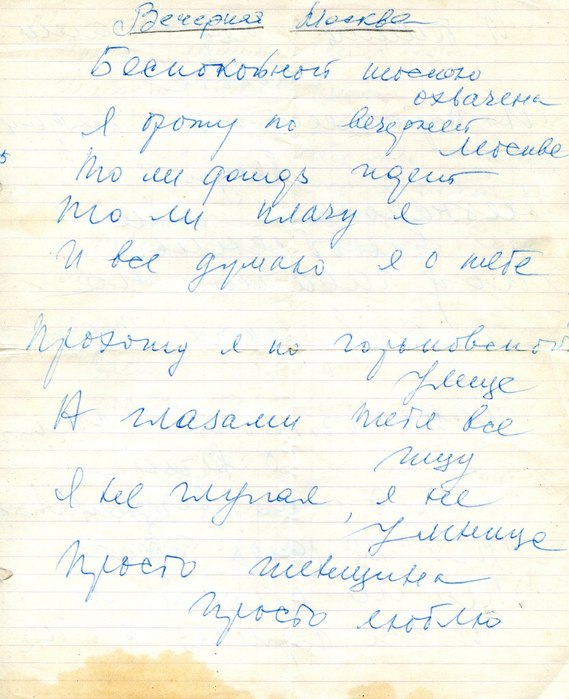 Вечерняя Москва
Беспокойной тоскою
охвачена
Я брожу по вечерней
Москве
То ли дождь идет
То ли плачу я
И все думаю я о тебе
Прохожу я по горьковской
улице
А глазами тебя все
ищу
Я не глупая, я не
умница
Просто женщина
просто люблю